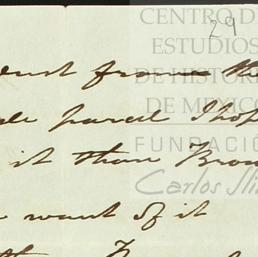 29
CENTRO DE
ESTUDIOS
DE HISTORIA
DE MEXICO
FUNDACIÓN
Carlos Slim
from the
parcel I hop
it than Brow
want of it